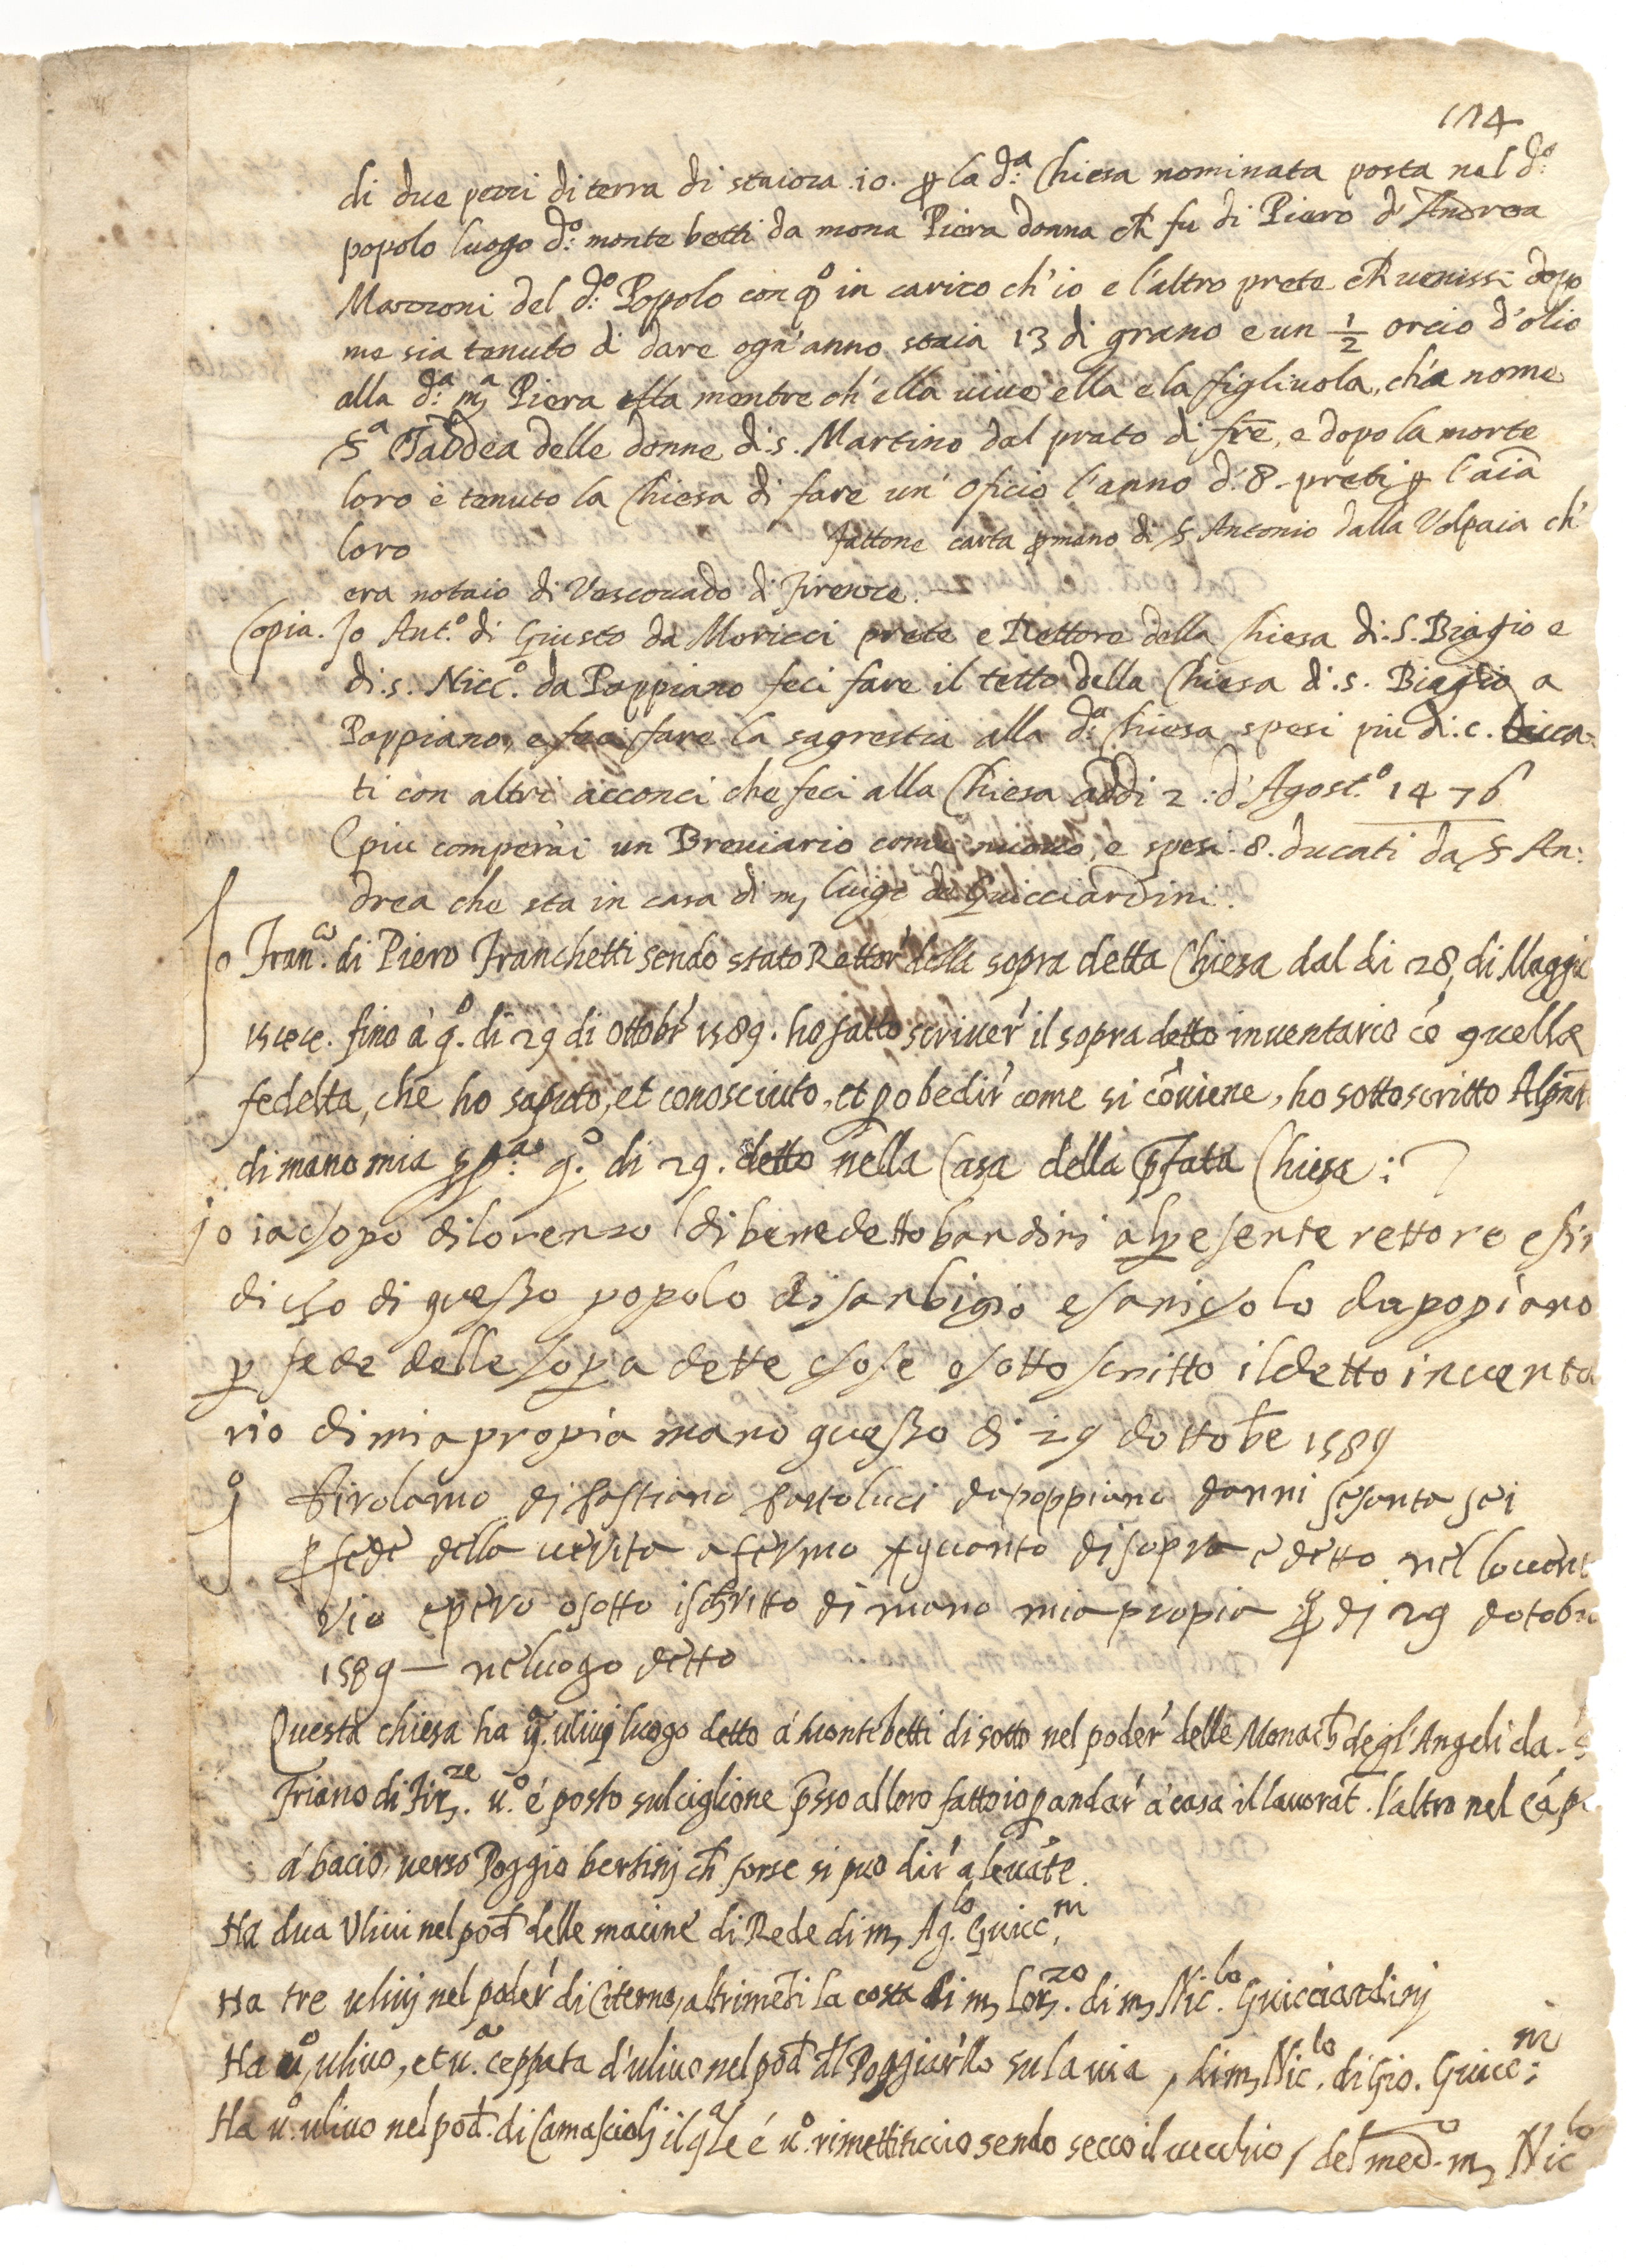 174
di due pezzi di terra di staiora .10. p la d:ª Chiesa nominata posta nel d:º
popolo luogo d:º monte betti da mona Piera donna ch fu di Piero d'Andrea
Mazzoni del d:º Popolo con qº in carico ch'io e l'altro prete ch venissi dopo
me sia tenuto di dare ogn'anno staia 13 di grano e un 1/2 orcio d'olio
alla d:ª mª Piera mentre ch'ella vive ella e la figliuola, ch'a nome
Sª Taddea delle donne di .s. Martino dal prato di fre, e dopo la morte
loro è tenuto la Chiesa di fare un' oficio l'anno d' 8 - preti p l'aia
loro fattone carta p mano di S Antonio dalla Volpaia ch'
era notaio di Vescovado di Firenze. —
Copia. Jo Ant.º di Giusto da Moricci prete e Rettore della Chiesa di .S. Biagio e
di .s. Nicc.º da Poppiano feci fare il tetto della Chiesa di .s. Biagio a
Poppiano, e feci fare la sagrestia alla d:ª Chiesa spesi piu di .c. Duca:
ti con altri acconci che feci alla Chiesa addi 2 : d'Agost.º 1476
E piu comperai un Breviario come nuovo, e spesi .8. ducati da S An:
drea che sta in casa di m, Luigi de Guicciardini.
Io Fran.co di Piero Franchetti sendo stato Rettor' della sopra detta Chiesa dal di 28, di Maggio
fino à q.º di 29 di Ottobr' 1589. ho fatto scriver' il sopra detto inventario cō quella
fedelta, che ho saputo, et conosciuto, et p obedir' come si cōviene, ho sottoscritto
di mano mia pp.ª q.º di 29. detto nella Casa della pfata Chiesa :
io iachopo di lorenzo di benedetto bandini al presente rettore e sin
dicho di questo popolo di san bigio e sa nicholo da popiano
p fede delle sopra dette chose o sotto scritto il detto inventa
rio di mia propia mano questo di 29 dottobe 1589
Jº Girolamo di bastiano bartoluci da poppiano danni sesanta sei
p fede della verita afermo quanto di sopra e detto nel
rio e pero o sotto ischritto di mano mia propia qº di 29 dotobre
1589 — nel luogo detto
Questa chiesa ha ulivi luogo detto a' Monte betti di sotto nel poder' delle Monach degl'Angeli da . S
Friano di Fir.ze u.º é posto sul ciglione psso al loro fattoio p andar' a casa il lavorat. l'altro nel cāp
á bacio, verso Poggio bertinj ch forse si puo dir' a levāte.
Ha dua Ulivi nel pod delle macine di Rede di m, Ag.lo Guicc.ni
Ha tre ulivj nel poder' di Citerna, altrimēti la costa di m, Lor.zo di m, Nic.lo Guicciardinj
Ha uº, ulivo, et uª. ceppata d'ulivo nel pod dl Poggiar'llo su la via, di m, Nic.lo di Gio. Guicc:ni
Ha uº. ulivo nel pod. di Camascioli il qle é uº. rimettiticcio sendo secco il vecchio, del med.º m, Nic.lo